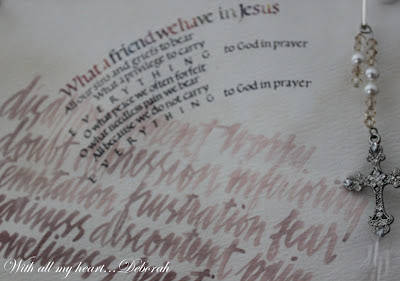 What a friend we have in Jesus
All our sins and griefs to bear
What a privilege to carry
EVERYTHING to God in prayer
O what peace we often forfeit
O what needless pain we bear
All because we do not carry
EVERYTHING to God in prayer
worry
doubt depression inferiority
frustration fear
discontent
With all my heart...Deborah